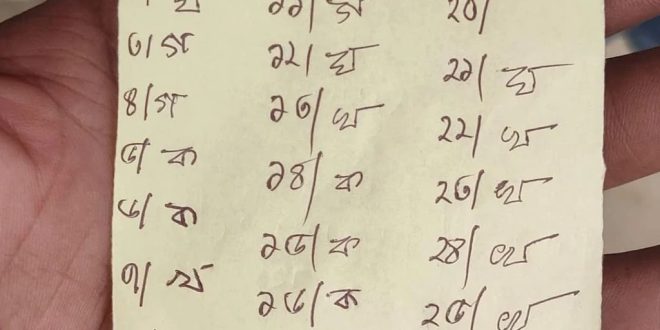 ৩/ গ
৪/ গ
৫/ ক
৬/ ক
৭/
১১/ গ
১২/ ঘ
১৩/ খ
১৪/ ক
১৫/ ক
১৬/ ক
২০/
২১/ ঘ
২২/ খ
২৩/ খ
২৪/ খ
২৫/ খ